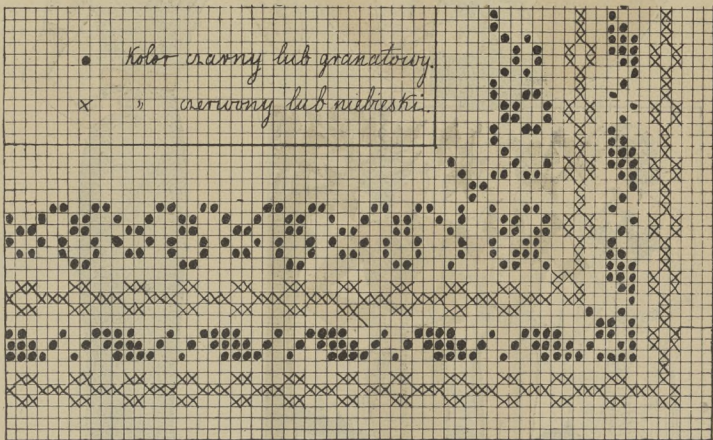 • Kolor czarny lub granatowy.
× " czerwony lub niebieski.